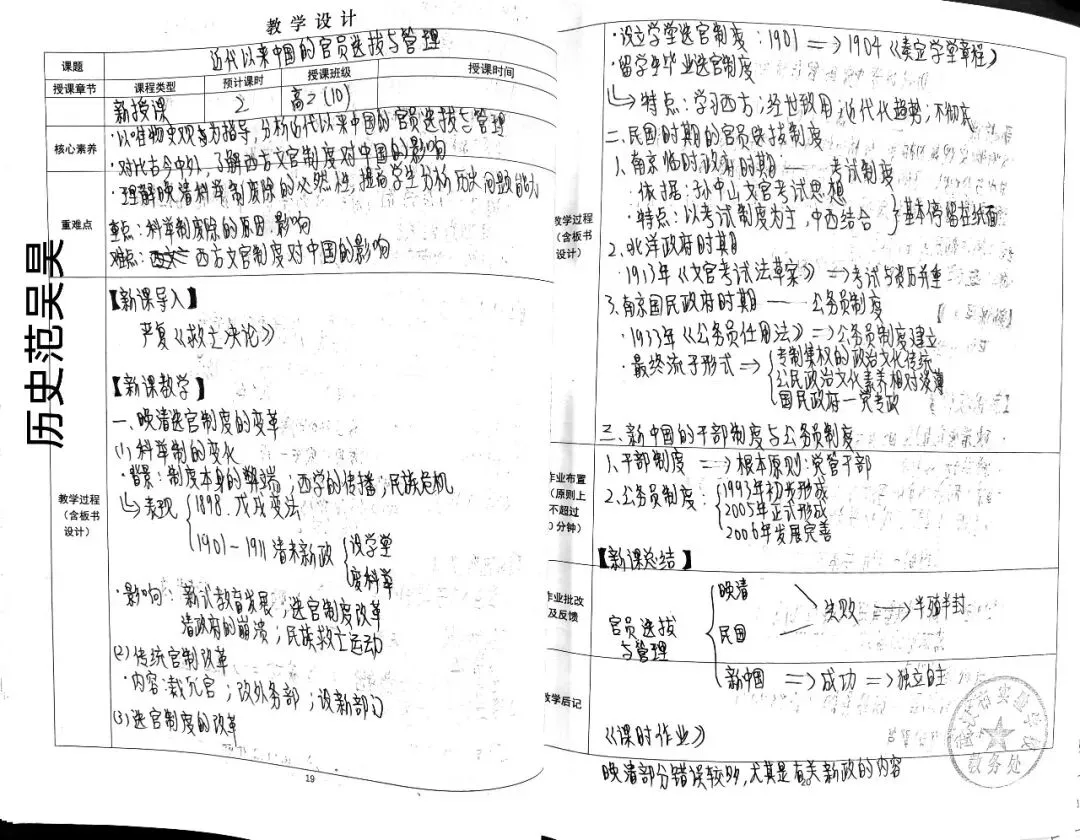 历史范吴昊
教学设计
课题 近代以来中国的官员选拔与管理
授课章节 课程类型 预计课时 授课班级 授课时间
新授课 2 高2(10)
核心素养
·以唯物史观为指导,分析近代以来中国的官员选拔与管理
·对比古今中外,了解西方文官制度对中国的影响
·理解晚清科举制废除的必然性,提高学生分析历史问题能力
重难点
重点:科举制废除的原因.影响
难点:西方文官制度对中国的影响
教学过程
(含板书
设计)
【新课导入】
严复《救亡决论》
【新课教学】
一、晚清选官制度的变革
(1)科举制的变化
·背景:制度本身的弊端;西学的传播;民族危机
↳表现 1898.戊戌变法
1901-1911清末新政 设学堂
废科举
·影响:新式教育发展;选官制度改革
清政府的崩溃;民族救亡运动
(2)传统官制改革
·内容:裁冗官;改外务部;设新部门
(3)选官制度的改革
19
·设立学堂选官制度:1901⇒1904《奏定学堂章程》
·留学生毕业选官制度
↳特点:学习西方;经世致用;近代化趋势;不彻底
二、民国时期的官员选拔制度
1、南京临时政府时期——考试制度
·依据:孙中山文官考试思想
·特点:以考试制度为主,中西结合 }基本停留在纸面
教学过程
(含板书
设计)
2、北洋政府时期
·1913年《文官考试法草案》⇒考试与资历并重
3、南京国民政府时期——公务员制度
·1933年《公务员任用法》⇒公务员制度建立
·最终流于形式⇒ 专制集权的政治文化传统
公民政治文化素养相对淡薄
国民政府一党专政
三、新中国的干部制度与公务员制度
作业布置
(原则上
不超过
0分钟)
1、干部制度⇒根本原则:党管干部
2、公务员制度: 1993年初步形成
2005年正式形成
2006年发展完善
【新课总结】
作业批改
及反馈
官员选拔
与管理
晚清
民国
失败⇒半殖半封
新中国⇒成功⇒独立自主
教学后记
《课时作业》
晚清部分错误较多,尤其是有关新政的内容
教务处